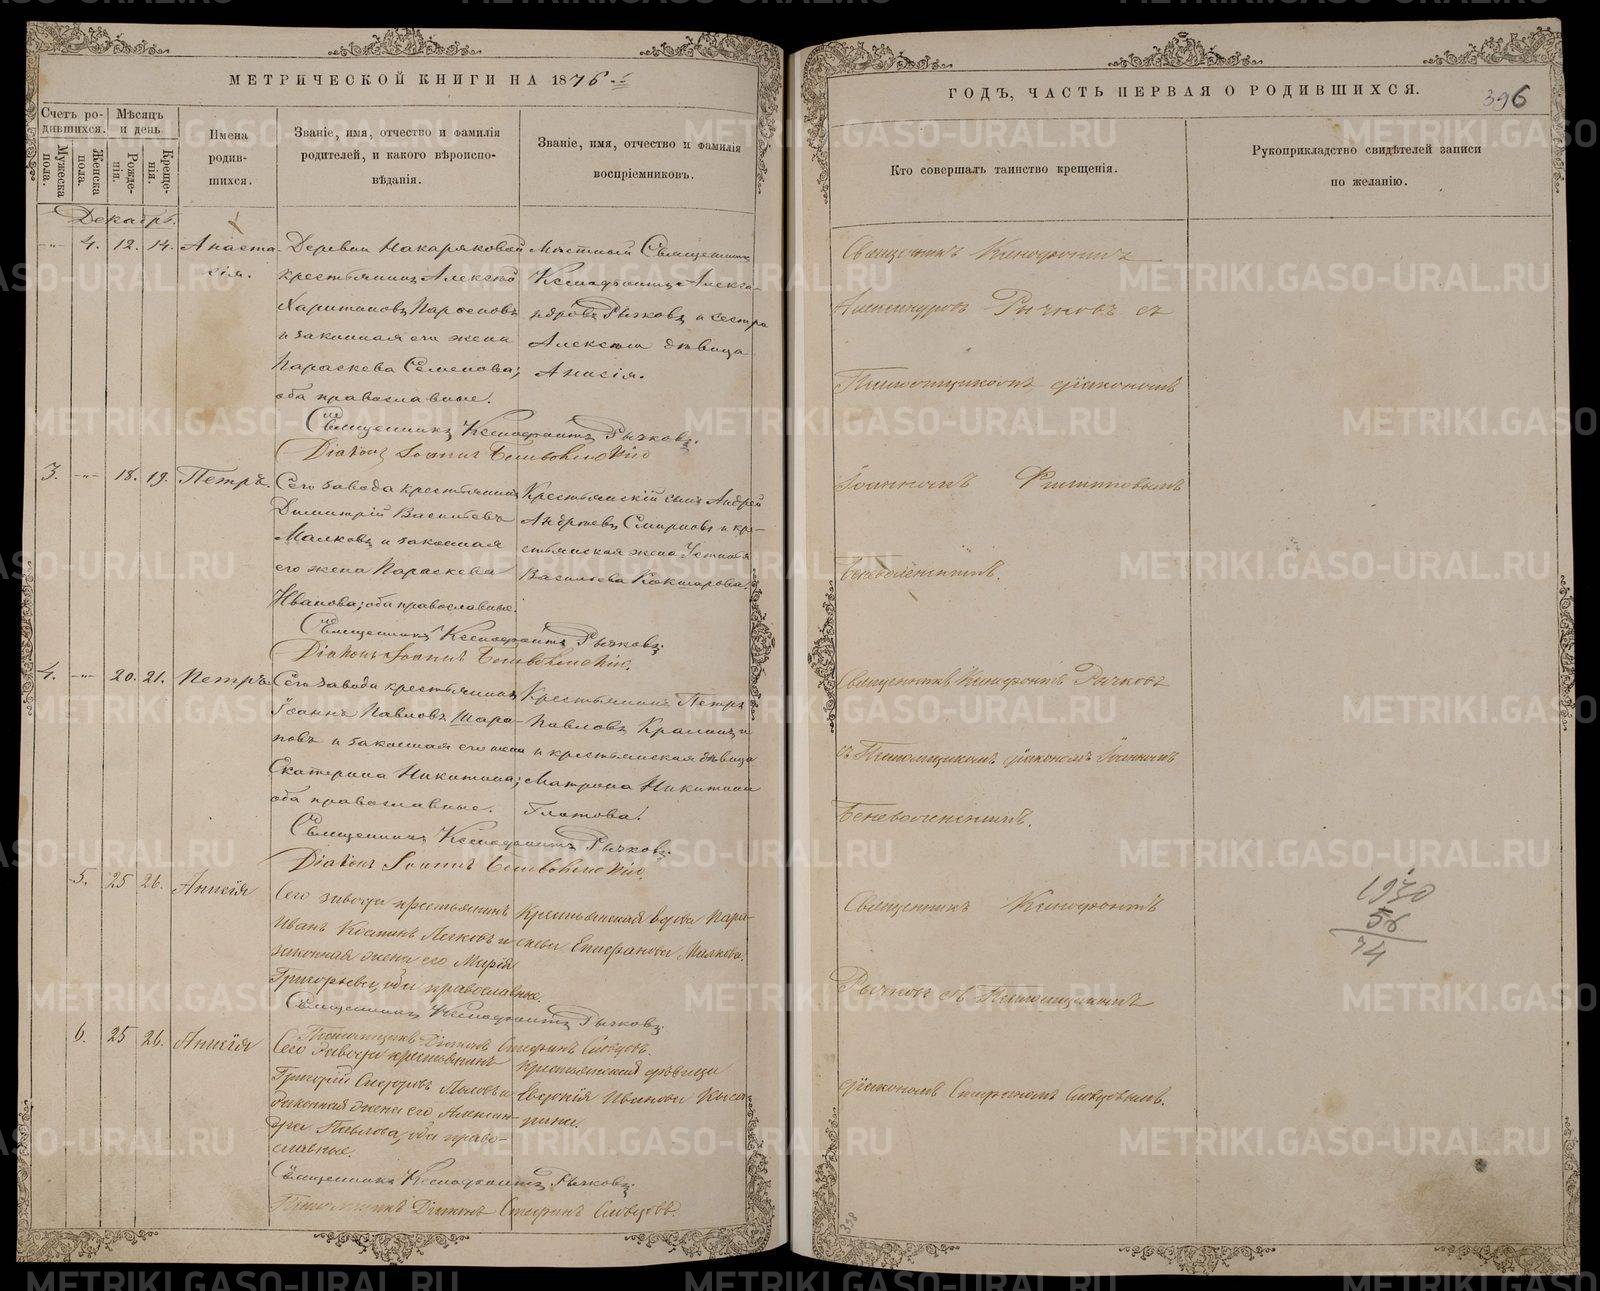 МЕТРИЧЕСКОЙ КНИГИ НА 1876
Счетъ ро-
дившихся.
Мѣсяцъ
и день
Мужеска
пола.
Женска
пола.
Рожде-
нія.
Креще-
нія.
Имена
родив-
шихся.
Званіе, имя, отчество и фамилія
родителей, и какого вѣроиспо-
вѣданія.
Званіе, имя, отчество и фамилія
воспріемниковъ.
Декабрь.
4. 12. 14. Анаста-
сія.
Деревни Макаряковой
крестьянинъ Алексѣй
Харитоновъ
и законная его жена
Параскева Семенова;
оба православные.
Мѣстный Священникъ
Ксенофонтъ Алекса-
ндровъ Рычковъ и сестра
Алексѣя дѣвица
Анисія.
Священникъ Ксенофонтъ Рычковъ.
3. 18. 19. Петръ.
Сего завода крестьянинъ
Димитрій Васильевъ
Малковъ и законная
его жена Параскева
Иванова; оба православные.
Крестьянскій сынъ Андрей
Андреевъ Смирновъ и кре-
стьянская жена
Васильева Кокшарова.
Священникъ Ксенофонтъ Рычковъ.
4. 20. 21. Петръ
Сего завода крестьянинъ
Іоаннъ Павловъ Шара-
повъ и законная его жена
Екатерина Никитина;
оба православные.
Крестьянинъ Петръ
Павловъ
и крестьянская дѣвица
Матрона Никитина
Глатова.
Священникъ Ксенофонтъ Рычковъ.
5. 25 26. Анисія
Сего завода крестьянинъ
Иванъ Косминъ и
законная жена его Марія
Григорьева, оба православные.
Крестьянская вдова Пара-
скева Епифанова Малкова.
Священникъ Ксенофонтъ Рычковъ.
Помощникъ Діаконъ Стефанъ Словцовъ.
6. 25 26. Анисія
Сего завода крестьянинъ
Григорій Сидоровъ и
законная жена его Алексан-
дра Павлова, оба право-
славные.
Крестьянская дѣвица
Евдокія Иванова
Священникъ Ксенофонтъ Рычковъ.
Діаконъ Стефанъ Словцовъ.
ГОДЪ, ЧАСТЬ ПЕРВАЯ О РОДИВШИХСЯ.
396
Кто совершалъ таинство крещенія.
Рукоприкладство свидѣтелей записи
по желанію.
Священникъ Ксенофонтъ
Александровъ Рычковъ съ
Помощникомъ діакономъ
Іоанномъ Филипповымъ
Беневоленскимъ.
Священникъ Ксенофонтъ Рычковъ
съ Помощникомъ діакономъ Іоанномъ
Беневоленскимъ.
Священникъ Ксенофонтъ
Рычковъ съ Помощникомъ
діакономъ Стефаномъ Словцовымъ.
1970
56
74
398
METRIKI.GASO-URAL.RU